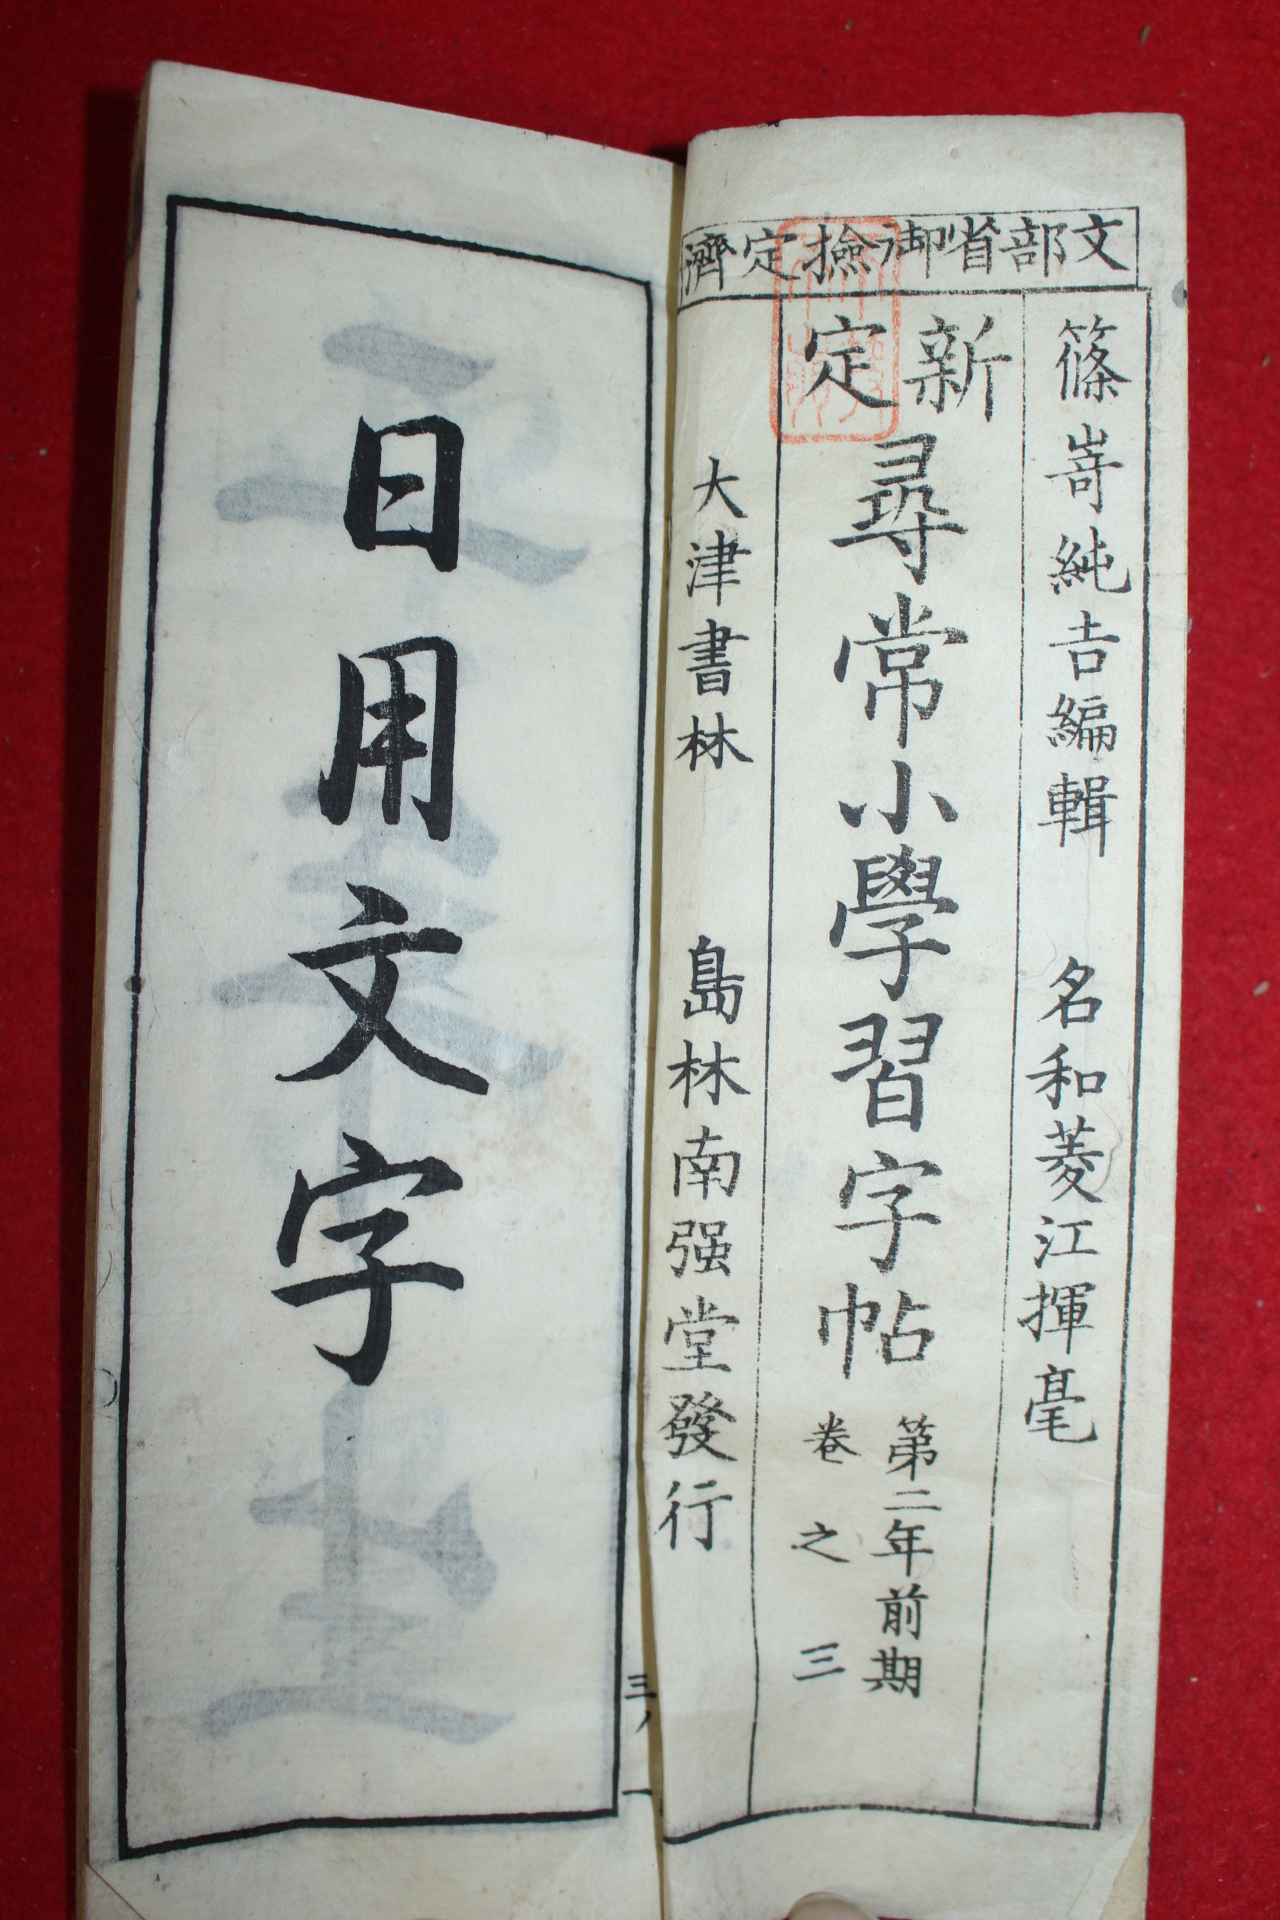 文部省御檢定濟
篠嵜純吉編輯 名和菱江揮毫
新定尋常小學習字帖 第二年前期 卷之三
大津書林 島林南强堂發行
三ノ一
日用文字